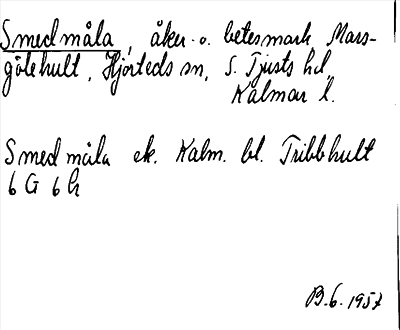 Smedmåla, åker- o. betesmark Mars-
götehult, Hjorteds sn, S. Tjusts hd,
Kalmar l.
Smedmåla ek. Kalm. bl. Tribbhult
6 G 6 h
B.G. 1957